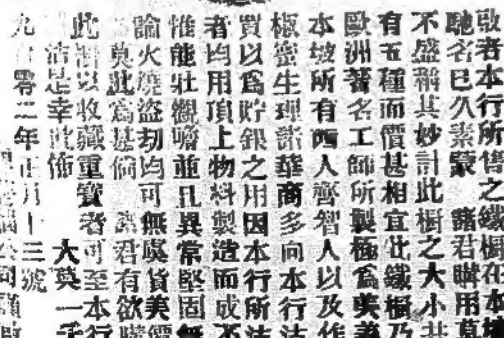 敬者本行所售之鐵櫥在本坡
馳名已久素蒙 諸君購用莫
不盛稱其妙計此櫥之大小共
有五種而價甚相宜此鐵櫥乃
歐洲著名工師所製極爲美善
本坡所有西人齊智人以及作
椒蜜生理諸華商多向本行法
買以爲貯銀之用因本行所沽
者均用頂上物料製造而成不
惟能壯觀瞻並且異常堅固無
論火燒盜劫均可無虞貨美價
莫此爲甚倘 諸君有欲購
此櫥以收藏重寶者可至本行
沽是幸此佈
九 零二年正月十三號 大英一千
公司